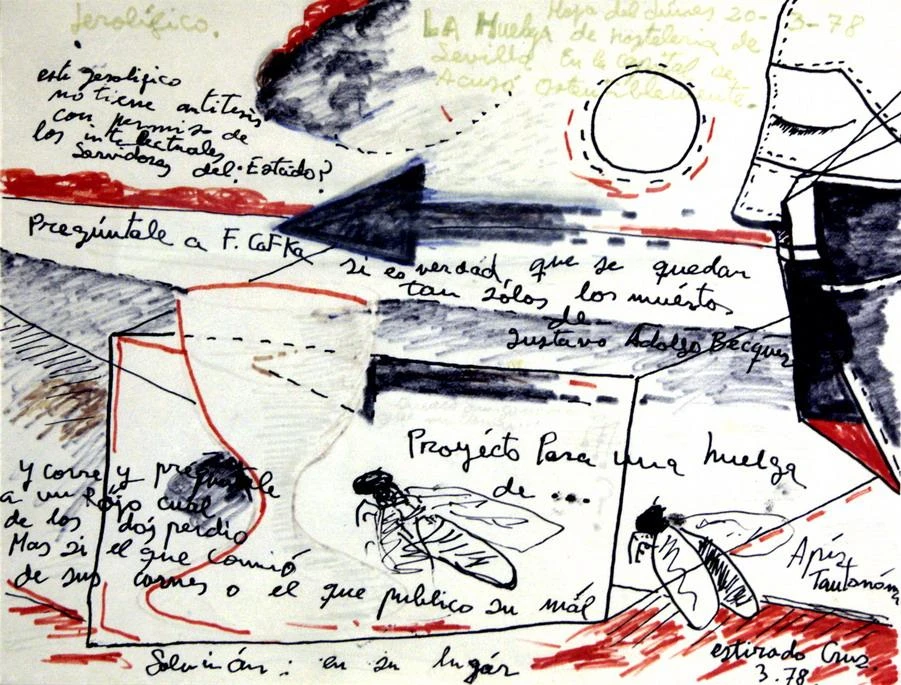 Jerolífico.
Hoja del Lunes 20-3-78
LA Huelga de hosteleria de
Sevilla. En la capital se
Acusó ostentiblemente.
este jerolifico
no tiene antitesis
con permiso de
los intelectuales
Servidores del Estado?
Pregúntale a F. CaFKa
si es verdad, que se quedan
tan sólos los muértos
de
Gustavo Adolfo Becquer
Proyécto Para una huelga
de ...
y corre y pregúntale
a un Rojo cual
de los dos perdio
Mas si el que comió
de sus carnes o el que publico su mál
Apís
Tautonóm
Solución: en su lugár
estirado Cruz.
3.78